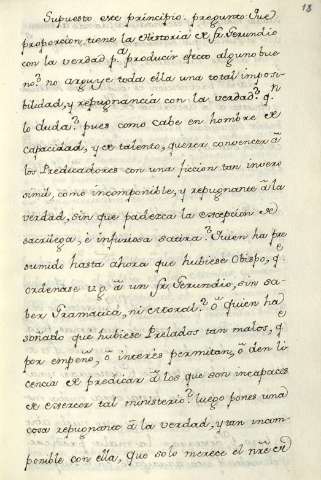 13
Supuesto este principio. pregunto Que
proporcion tiene la Historia de fr Gerundio
con la verdad pª producir efecto alguno bue
no? no arguye toda ella una total imposi-
bilidad, y repugnancia con la verdad? qn
lo duda? pues como cabe en hombre de
capacidad, y de talento, querer convencer â
los Predicadores con una ficcion tan invero
simil, como incomponible, y repugnante â la
verdad, sin que padezca la excepcion de
sacrilega, è injuriosa satira? Quien ha pre
sumido hasta ahora que hubiese Obispo, qe
ordenase v.g. â un fr Gerundio, sin sa-
ber Gramatica, ni Moral? ô quien ha
soñado que hubiese Prelados tan malos, qe
por empeño, ô interes permitan, ô den li
cencia de predicar â los que son incapaces
de exercer tal ministerio? luego pones una
cosa repugnante â la verdad, y tan incom-
ponible con ella, que solo merece el nre de